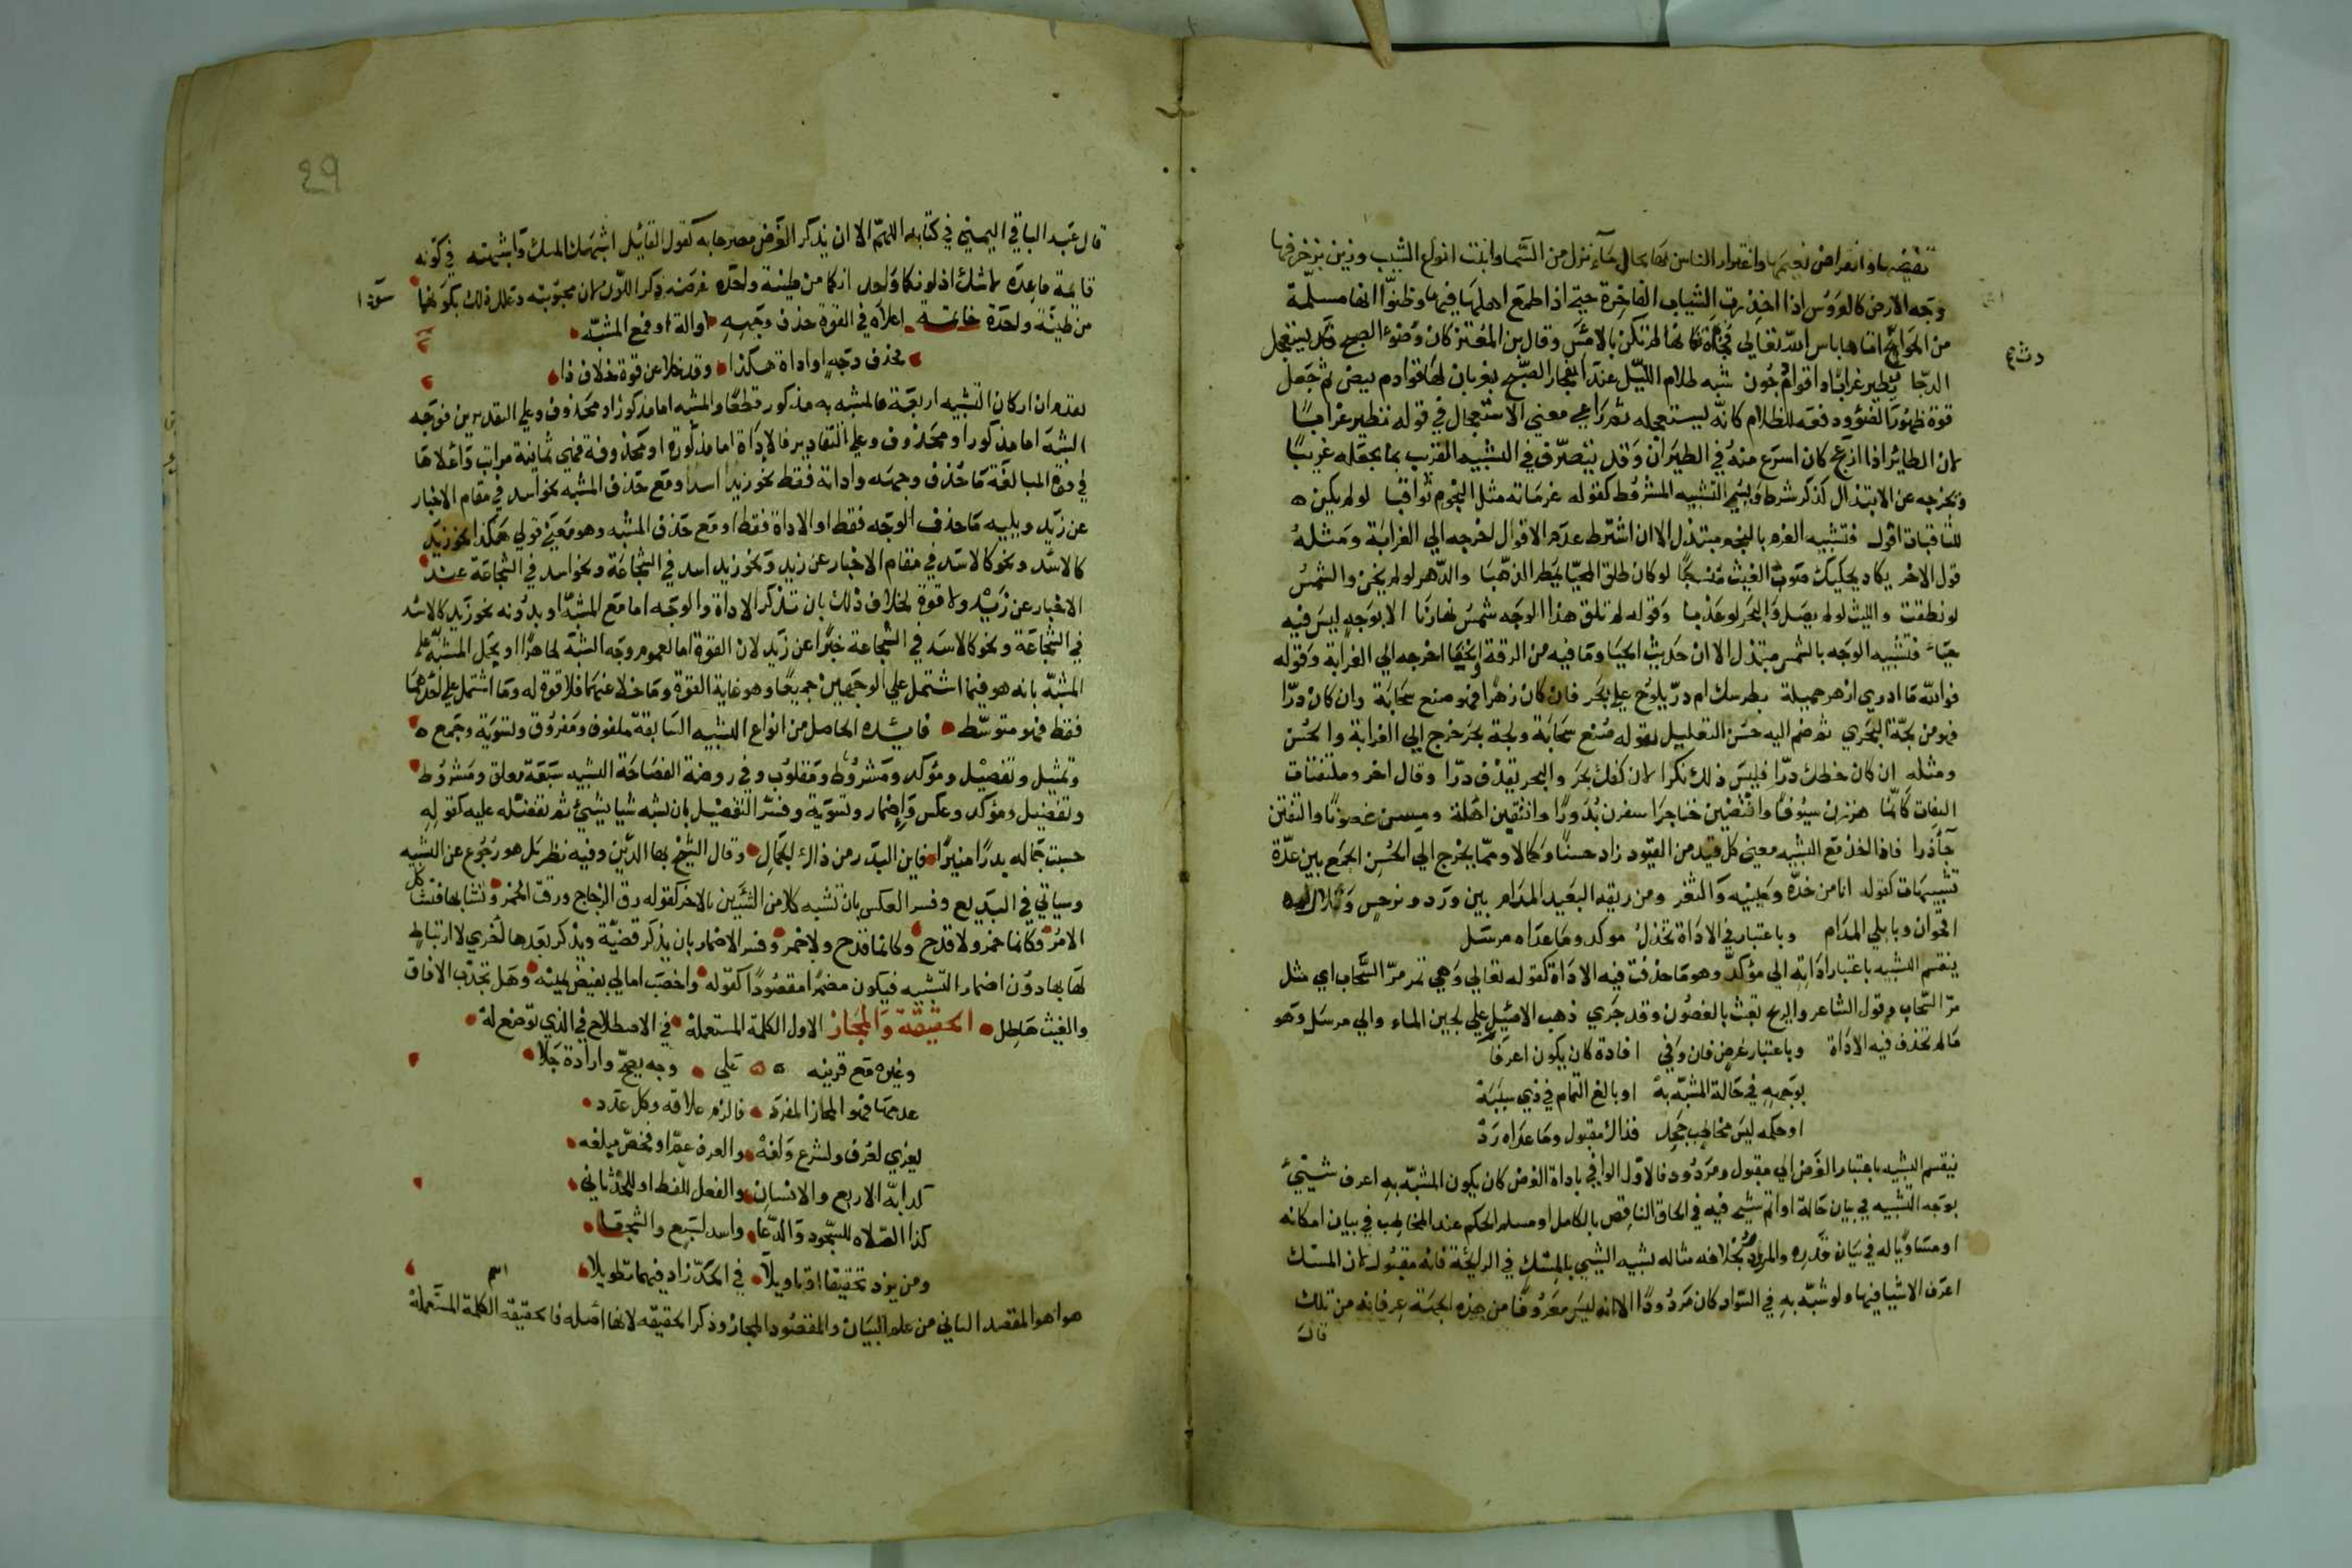 تقضيها وانقراض نعيمها واغترار الناس بها بحال ماء نزل من السما وانبت انواع الشبب وزين بزخرفها
وجه الارض كالعروس اذا اخذت الثياب الفاخرة حتى اذا طمع اهلها فيها وظنوا انها مسلمة
من الجوائح اتاها باس الله تعالى فجأة فكانها لم تكن بالامس وقال بن المعتز كان وضوء الصبح يستعجل
الدجا نطير غرابا ذا قوادم جون شبه ظلام الليل عند انفجار الصبح بغربان لها قوادم بيض ثم جعل
قوة ظهور الضوء ودفعه للظلام كانه يستعجله ثم راعى معنى الاستعجال في قوله نطير غرابا
لان الطائر اذا ازعج كان اسرع منه في الطيران وقد يتصرف في التشبيه القريب بما يجعله غريبا
ويخرجه عن الابتذال كذكر شرط ويسمى التشبيه المشروط كقوله عزماته مثل النجوم ثواقبا لو لم يكن
للثاقبات افول فتشبيه العزم بالنجم مبتذل الا ان اشتراط عدم الافول اخرجه الى الغرابة ومثله
قول الاخر يكاد يحكيك صوب الغيث منسكبا لو كان طلق المحيا يمطر الذهبا والدهر لو لم يخن والشمس
لو نطقت والليث لو لم يصد والبحر لو عذبا وقوله لم تلق هذا الوجه شمس نهارنا الا بوجه ليس فيه
حياء فتشبيه الوجه بالشمس مبتذل الا ان حديث الحيا وما فيه من الرقة والخفا اخرجه الى الغرابة وقوله
فوالله ما ادري ازهر خميلة بطرسك ام در يلوح على بحر فان كان زهرا فهو صنع سحابة وان كان درا
فهو من لجة البحري ثم ضم اليه حسن التعليل بقوله صنع سحابة ولجة بحر خرج الى الغرابة والحسن
ومثله ان كان خطك درا فليس ذلك نكرا لان كفك بحر والبحر يقذف درا وقال اخر وملتفتات
التفات كانما هززن سيوفا وانتضين خناجرا سفرن بدورا وانتقبن اهلة ومسن غصونا والتفتن
جآذرا فاذا اخذ مع التشبيه معنى كل قيد من القيود زاد حسنا وكمالا ومما يخرج الى الحسن الجمع بين عدة
تشبيهات كقوله انا من خده وعينيه والثغر ومن ريقه البعيد المرام بين ورد ونرجس وتلالى
اقحوان وبابلي المدام وباعتبار في الاداة تخذل موكد وما عداه مرسل
ينقسم التشبيه باعتبار اداته الى مؤكد وهو ما حذفت فيه الاداة كقوله تعالى وهي تمر مر السحاب اي مثل
مر السحاب وقول الشاعر والريح تعبث بالغصون وقد جرى ذهب الاصيل على لجين الماء والى مرسل وهو
ما لم تحذف فيه الاداة وباعتبار غرض فان وفى افادة كان يكون اعرفا
بوجهه في حالة المشبه به او بالغ التمام في ذي سببه
او حكمه ليس مخاطب جحد فذاك مقبول وما عداه رد
ينقسم التشبيه باعتبار الغرض الى مقبول ومردود فالاول الوافي باداة الغرض كان يكون المشبه به اعرف شيء
بوجه التشبيه في بيان حالة او اتم شيء فيه في الحاق الناقص بالكامل او مسلم الحكم عند المخاطب في بيان امكانه
او مساويا له في بيان قدره والمردود بخلافه مثاله تشبيه الشيء بالمسك في الرائحة فانه مقبول لان المسك
اعرف الاشيا فيها ولو شبه به في السواد كان مردودا الا انه ليس معروفا من هذه الجهة عرفانه من تلك
قال
29
قال عبد الباقي اليمني في كتابه اللهم الا ان يذكر الغرض مصرحا به كقول القائل اشبهك المسك واشبهته في كونه
قائمة قاعدة لا شك اذ لونكما واحد انكما من طينة واحدة غرضه ذكر اللون لان محبوبته وعلل ذلك بكونهما
من طينة واحدة خاتمة اعلاه في القوة حذف وجهه او آلة او مع المشبه
محذف وجه او اداة هكذا وقد خلا عن قوة خلاف ذا
تقدم ان اركان التشبيه اربعة فالمشبه به مذكور قطعا والمشبه اما مذكور او محذوف وعلى التقديرين فوجه
الشبه اما مذكور او محذوف وعلى التقادير فالاداة اما مذكورة او محذوفة فهي ثمانية مراتب واعلاها
في قوة المبالغة ما حذف وجهه واداته فقط نحو زيد اسد او مع حذف المشبه نحو اسد في مقام الاخبار
عن زيد ويليه ما حذف الوجه فقط او الاداة فقط او مع حذف المشبه وهو معنى قولي هكذا نحو زيد
كالاسد ونحو كالاسد في مقام الاخبار عن زيد ونحو زيد اسد في الشجاعة ونحو اسد في الشجاعة عند
الاخبار عن زيد ولا قوة لخلاف ذلك بان تذكر الاداة والوجه اما مع المشبه او بدونه نحو زيد كالاسد
في الشجاعة ونحو كالاسد في الشجاعة خبرا عن زيد لان القوة اما لعموم وجه الشبه ظاهرا او بحمل المشبه على
المشبه بانه هو فما اشتمل على الوجهين جميعا وهو غاية القوة وما خلا عنهما فلا قوة له وما اشتمل على احدهما
فقط فهو متوسط فائدة الحاصل من انواع التشبيه السابقة ملفوف ومفروق وتسوية وجمع
وتمثيل وتفصيل ومؤكد ومشروط ومقلوب وفي روضة الفصاحة التشبيه سبعة مطلق ومشروط
وتفضيل ومؤكد وعكس واضمار وتسوية وفسر التفضيل بان تشبه شيا بشيء ثم تفضله عليه كقوله
حسبت جماله بدرا منيرا فاين البدر من ذاك الجمال وقال الشيخ بها الدين وفيه نظر بل هو رجوع عن التشبيه
وسياتي في البديع وفسر العكس بان تشبه كلا من الشيئين بالاخر كقوله رق الزجاج ورقت الخمر وتشابها فتشاكل
الامر فكانما خمر ولا قدح وكانما قدح ولا خمر وفسر الاضمار بان يذكر قضية ويذكر بعدها اخرى لا ارتباط
لها بها دون اضمار التشبيه فيكون مضمرا مقصودا كقوله واخصب امالي بفيض يمينه وهل تجدب الافاق
والغيث هاطل الحقيقة والمجاز الاول الكلمة المستعملة في الاصطلاع في الذي توضع له
وغيره مع قرينه على وجه يصح وارادة جلا
عدمها فهو المجاز المفرد فالزم علاقه وكل عدد
يعزى لعرف ولشرع ولغه والعرف عم او فخص مبلغه
كدابة الاربع والانسان والفعل للفظ او للحدثاني
كذا الصلاه للسجود والدعا واسد لسبع والشجعا
ومن يزد تحقيقا او تاويلا في الحد زاد فيهما تطويلا
هذا هو المقصد الثاني من علم البيان والمقصود المجاز وذكر الحقيقه لانها اصله فالحقيقه الكلمة المستعملة